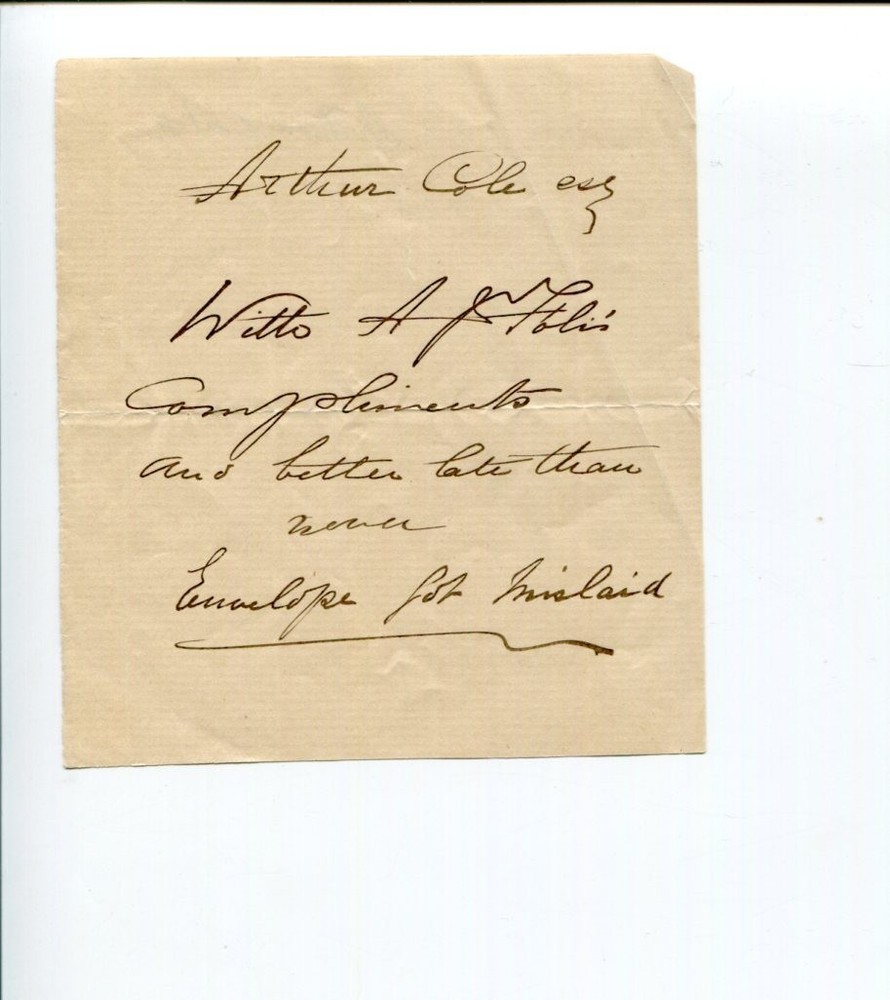 Arthur Cole esq
With A J Foli's
Compliments
and better late than
never
Envelope got mislaid